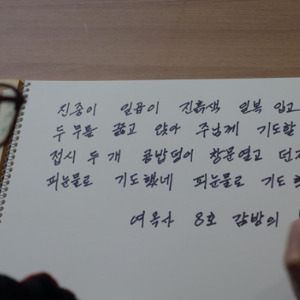 진중이 일곱이 진흙색 일복 입고
두 무릎 꿇고 앉아 주님께 기도할
접시 두 개 콩밥덩이 창문열고
피눈물로 기도했네 피눈물로
여옥사 8호 감방의